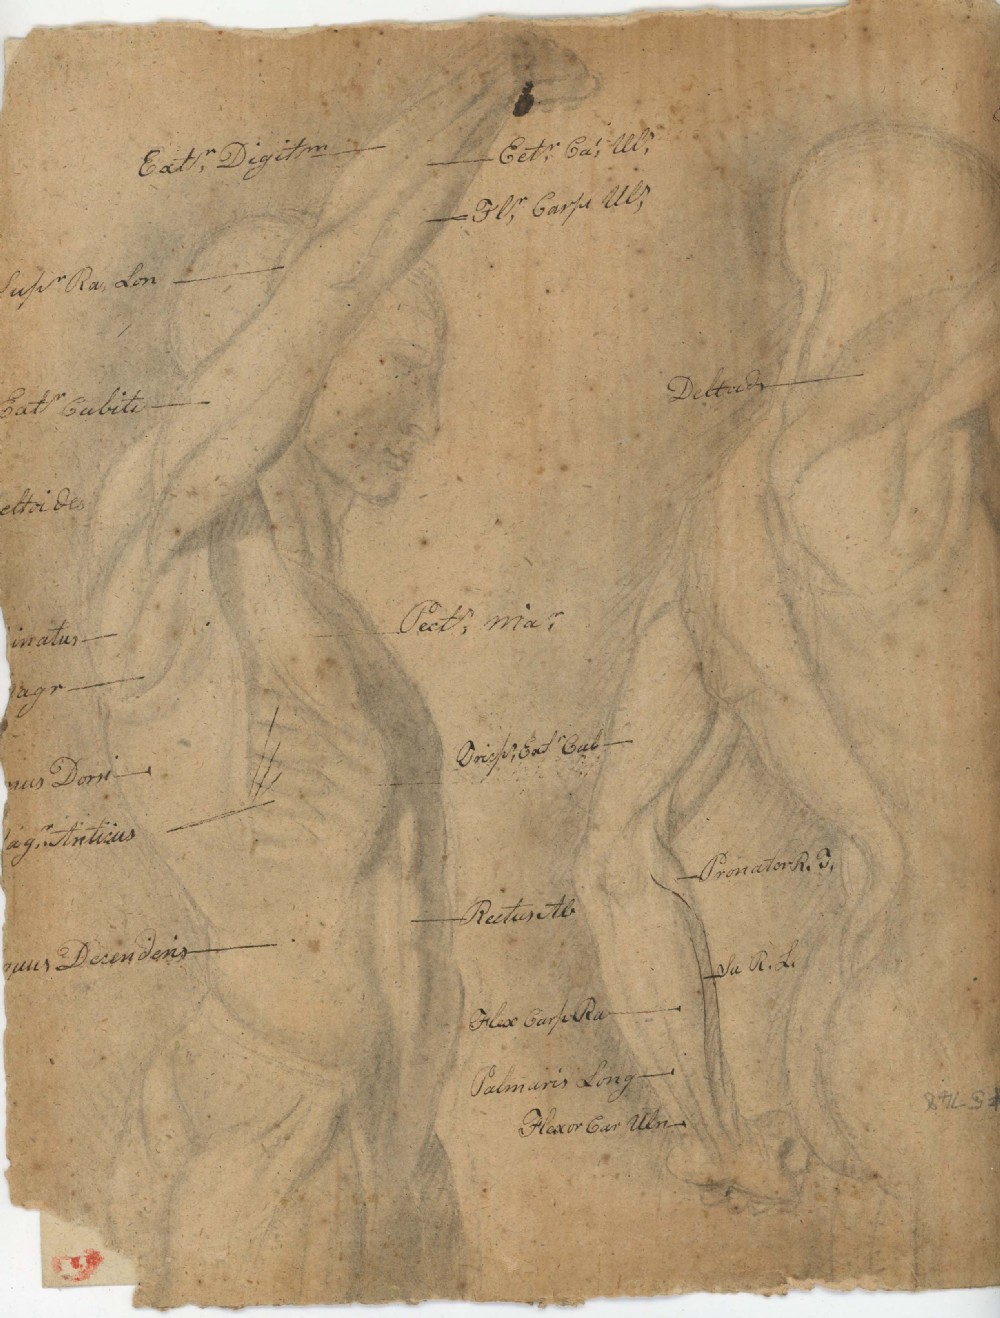 Extr, Digitm
Eetr, Ca, Ulr,
Flr, Carpi Ulr,
Supr Ra, Lon
Extr Cubiti
Deltoides
eltoides
inatus
agr
Pectr, mar,
Extr Cub
mus Dorsi
agr, Anticus
Pronator R. T.
Rectus Ab
quus Decendens
Su R. L.
Flex Carpi Ra
Palmaris Long
Flexor Car Uln